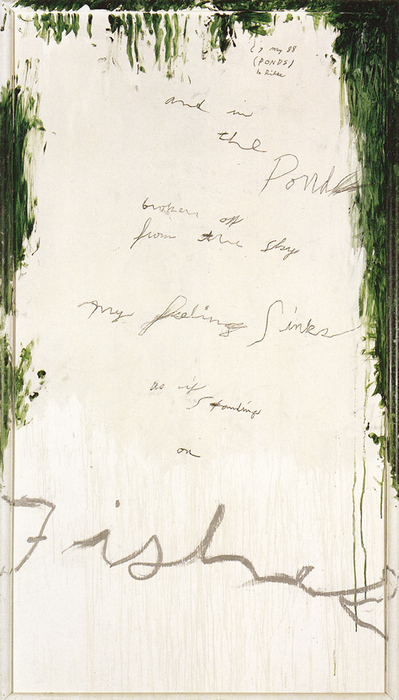 May 88
(PONDS)
to Rilke
and in
the
Ponds
broken off
from the sky
my feeling Sinks
as if
Standing
on
Fishes